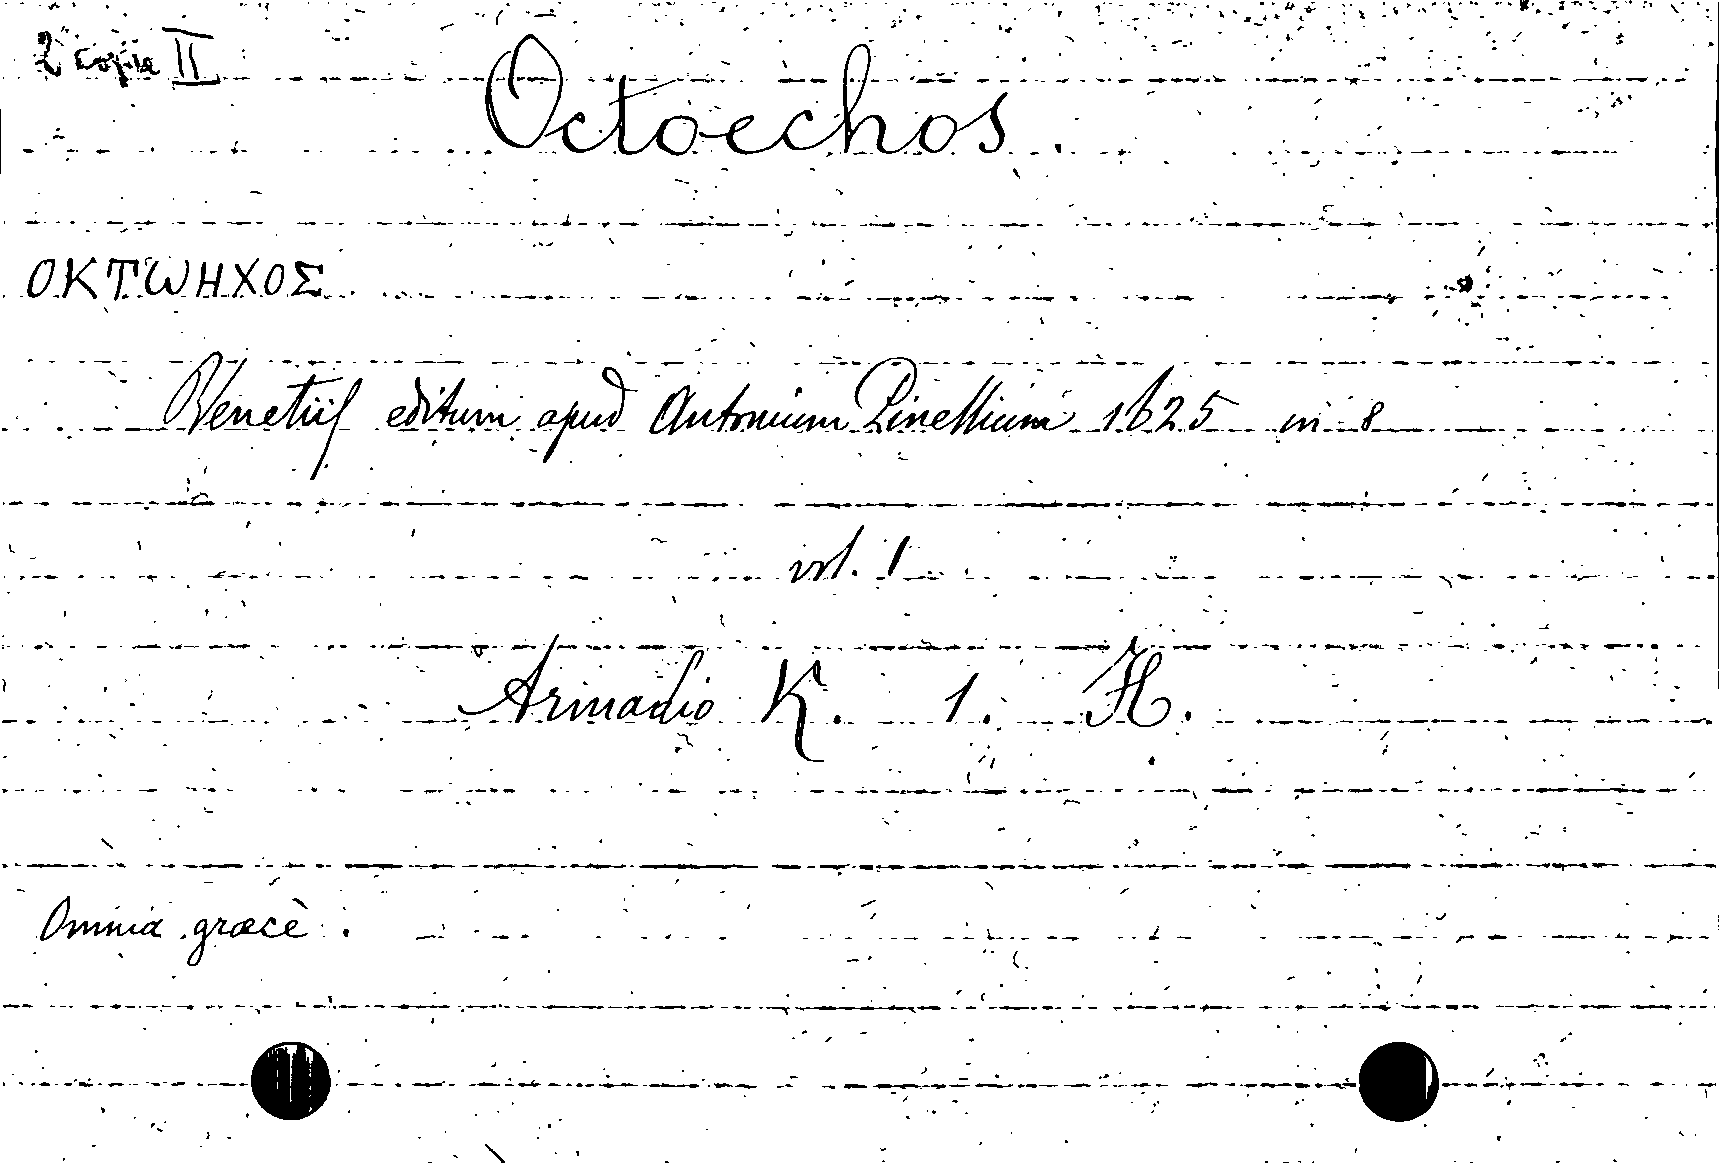 2 copia II
Octoechos.
ΟΚΤΩΗΧΟΣ.
Venetiis editum apud Antonium Pinellium 1625 in 8
vol. 1
Armadio K. 1. H.
Omnia græcè.